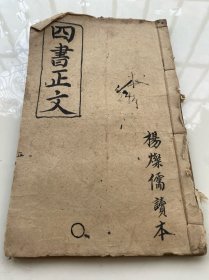 四書正文
楊燦儒讀本